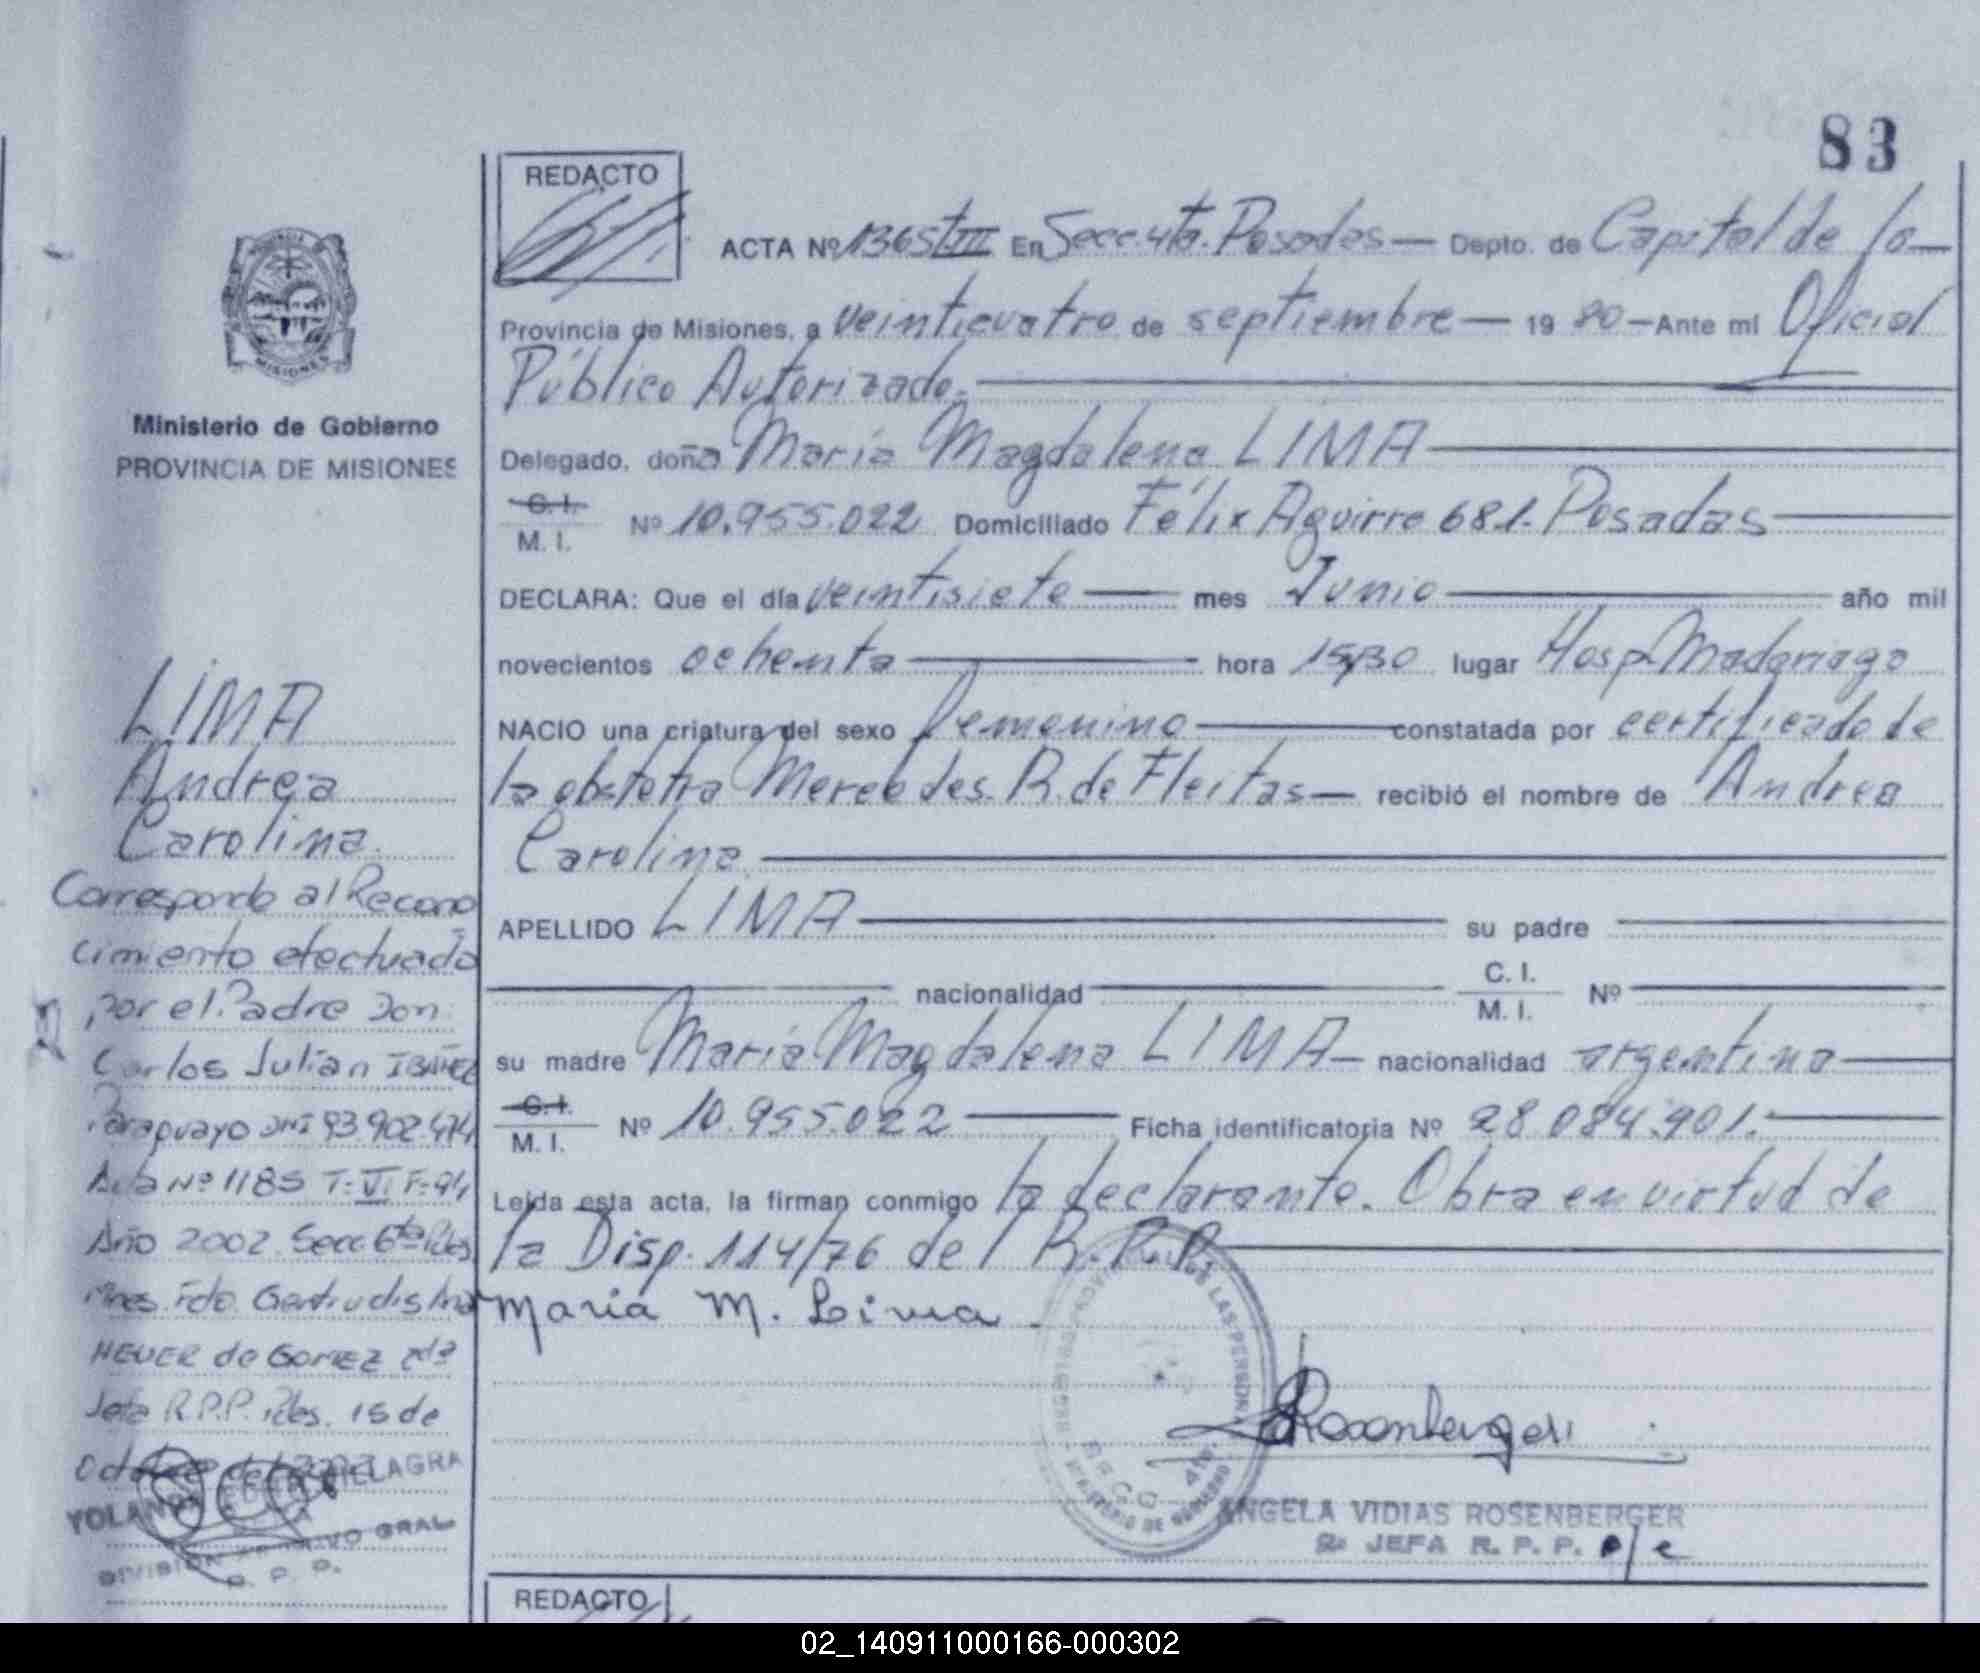 83
REDACTO
ACTA Nº 1365 T III En Secc. 4ta. Posadas — Depto. de Capital de la —
Provincia de Misiones, a veinticuatro de septiembre — 19 80 — Ante mí Oficial
Público Autorizado.
Delegado, doña María Magdalena LIMA
C. I.
M. I. Nº 10.955.022 Domiciliado Félix Aguirre 681. Posadas
DECLARA: Que el día veintisiete mes Junio año mil
novecientos ochenta hora 15,30 lugar Hosp. Madariaga
NACIO una criatura del sexo femenino constatada por certificado de
la obstetra Mercedes R. de Fleitas — recibió el nombre de Andrea
Carolina
APELLIDO LIMA su padre
nacionalidad C. I. M. I. Nº
su madre María Magdalena LIMA — nacionalidad argentina
C. I.
M. I. Nº 10.955.022 Ficha identificatoria Nº 28.084.901.
Leída esta acta, la firman conmigo la declarante. Obra en virtud de
la Disp. 114/76 del R.P.P.
Maria M. Lima
Rosenberger
ANGELA VIDIAS ROSENBERGER
2ª JEFA R. P. P. a/c
REDACTO
MISIONES
Ministerio de Gobierno
PROVINCIA DE MISIONES
LIMA
Andrea
Carolina.
Corresponde al Recono
cimiento efectuado
por el Padre Don
Carlos Julián IBAÑEZ
Paraguayo DNI 93.902.474
Acta Nº 1185 T: VI F: 94
Año 2002 Secc 6ta Pdas
Mnes. Fdo. Gertrudis Ana
HEUER de GOMEZ 2da
Jefa R.P.P. Pdas. 15 de
Octubre de 2002
YOLANDA VILLAGRA
DIVISION ARCHIVO GRAL
R. P. P.
02_140911000166-000302